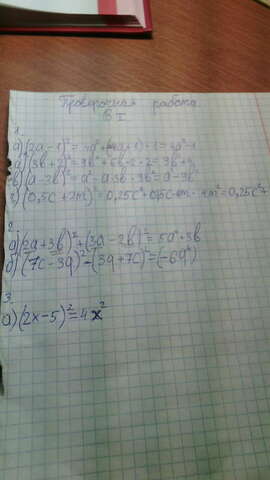 Проверочная работа
В I
1.
а) (2a-1)² = 4a²+(4a+1)·1=3a²-1
б) (3b+2)² = 9b²+6b·2·2=9b+9
в) (a-3b)² = a²-a·3b+3b²=a²-3b²
г) (0,5c+2m)² = 0,25c²+0,5c·m·4m²=0,25c²+
2.
а) (2a+3b)²+(3a-2b)²=5a²+3b
б) (7c-3a)²-(3a+7c)²=(-6a²)
3.
а) (2x-5)²=4x²